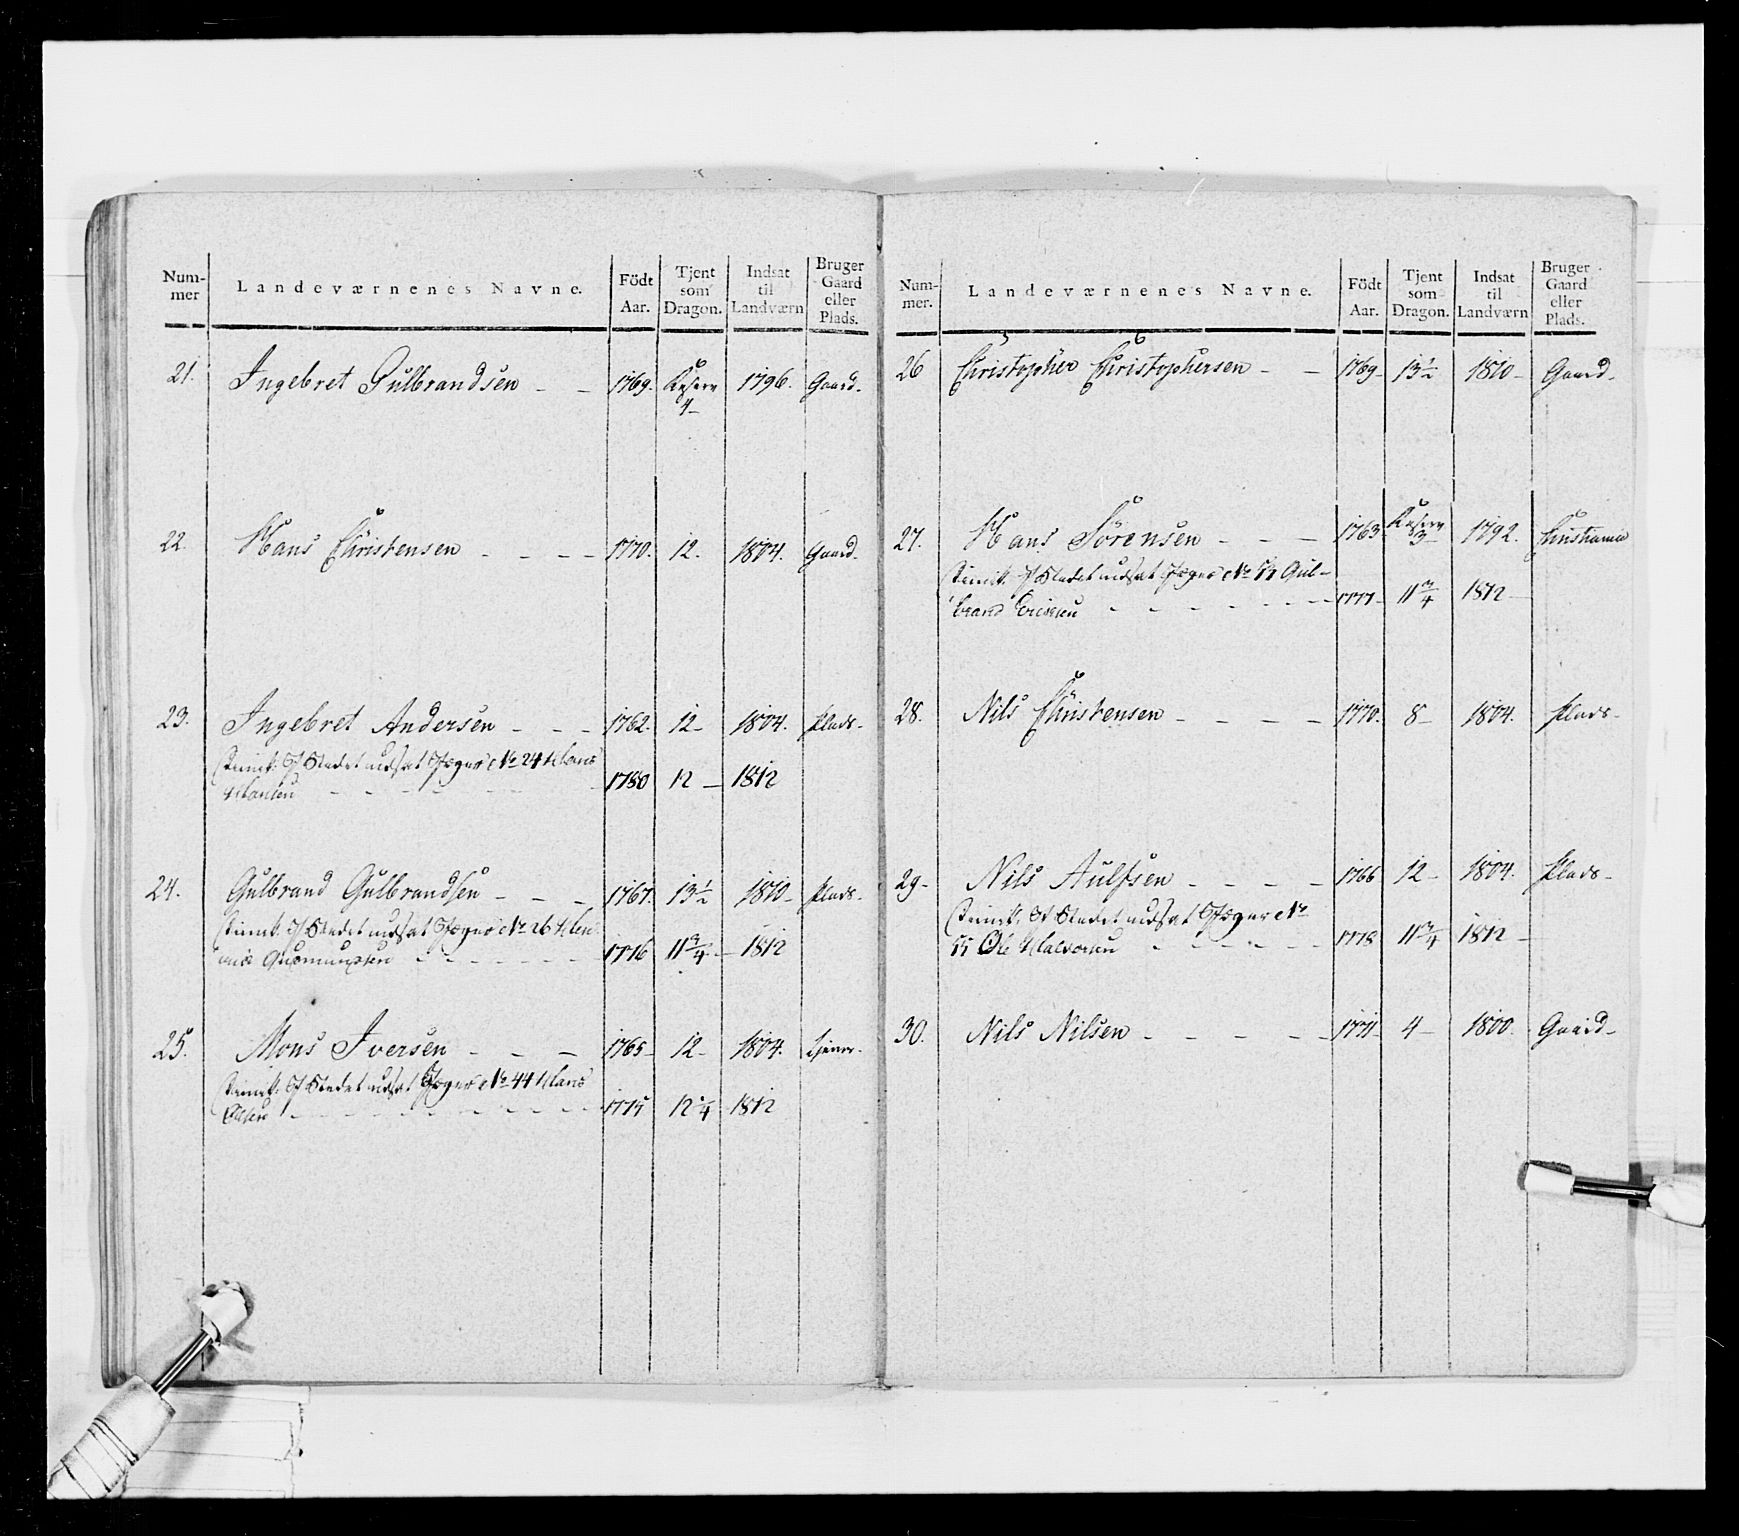 Num-
mer
Landeværnenes Navne.
Födt
Aar.
Tjent
som
Dragon.
Indsat
til
Landværn
Bruger
Gaard
eller
Plads.
21. Ingebret Gulbrandsen - - 1769. Reserv 4- 1796. Gaard.
22. Hans Christensen - - - - 1770. 12. 1804. Gaard.
23. Ingebret Andersen - - - 1762. 12- 1804. Plads-
I Stedet udsat Jæger No 24 Hans
Hansen - - - - 1780 12 - 1812
24. Gulbrand Gulbrandsen - - - 1767. 13½ 1810- Plads-
I Stedet udsat Jæger No 26
Gudmundsen - - - - 1776 11¾ - 1812
25. Mons Iversen - - - 1765- 12- 1804.
I Stedet udsat Jæger No 44 Hans
Olsen - - - - 1775 12¼ 1812
Num-
mer.
Landeværnenes Navne.
Födt
Aar.
Tjent
som
Dragon.
Indsat
til
Landværn
Bruger
Gaard
eller
Plads.
26 Christopher Christophersen - - 1769- 13½ 1810- Gaard-
27. Hans Sörensen - - - 1763 Reserv 3- 1792. Christiania
I Stedet udsat Jæger No 51 Gul-
brand Ericksen - - - - 1777- 11¾ 1812-
28. Nils Christensen - - - - 1770. 8- 1804. Plads-
29- Nils Aulfsen - - - - 1766 12- 1804. Plads-
I Stedet udsat Jæger No
55 Ole Halvorsen - - - - 1778 11¾ 1812-
30. Nils Nilsen - - - - 1771- 4- 1800. Gaard-